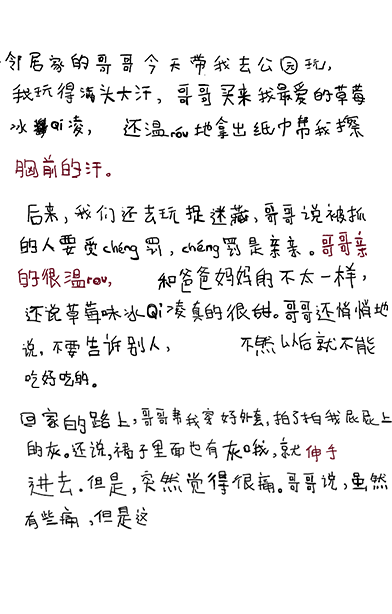 邻居家的哥哥今天带我去公园玩，
我玩得满头大汗，哥哥买来我最爱的草莓
冰Qi凌，还温róu地拿出纸巾帮我擦
胸前的汗。
后来，我们还去玩捉迷藏，哥哥说被抓
的人要受chéng罚，chéng罚是亲亲。哥哥亲
的很温rou，和爸爸妈妈的不太一样，
还说草莓味冰Qi凌真的很甜。哥哥还悄悄地
说，不要告诉别人，不然以后就不能
吃好吃的。
回家的路上，哥哥帮我穿好外套，拍了拍我屁屁上
的灰。还说，裙子里面也有灰哦，就伸手
进去。但是，突然觉得很痛。哥哥说，虽然
有些痛，但是这